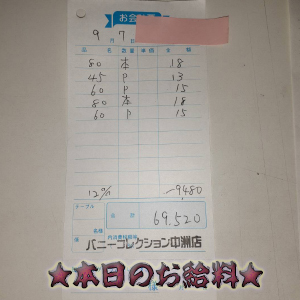 お会計票
9 7
品名 数量 単価 金額
80 本 18
45 P 13
60 P 15
80 本 18
60 P 15
12% -9480
テーブル
名様
合計 69.520
係
バニーコレクション中洲店
★本日のお給料★